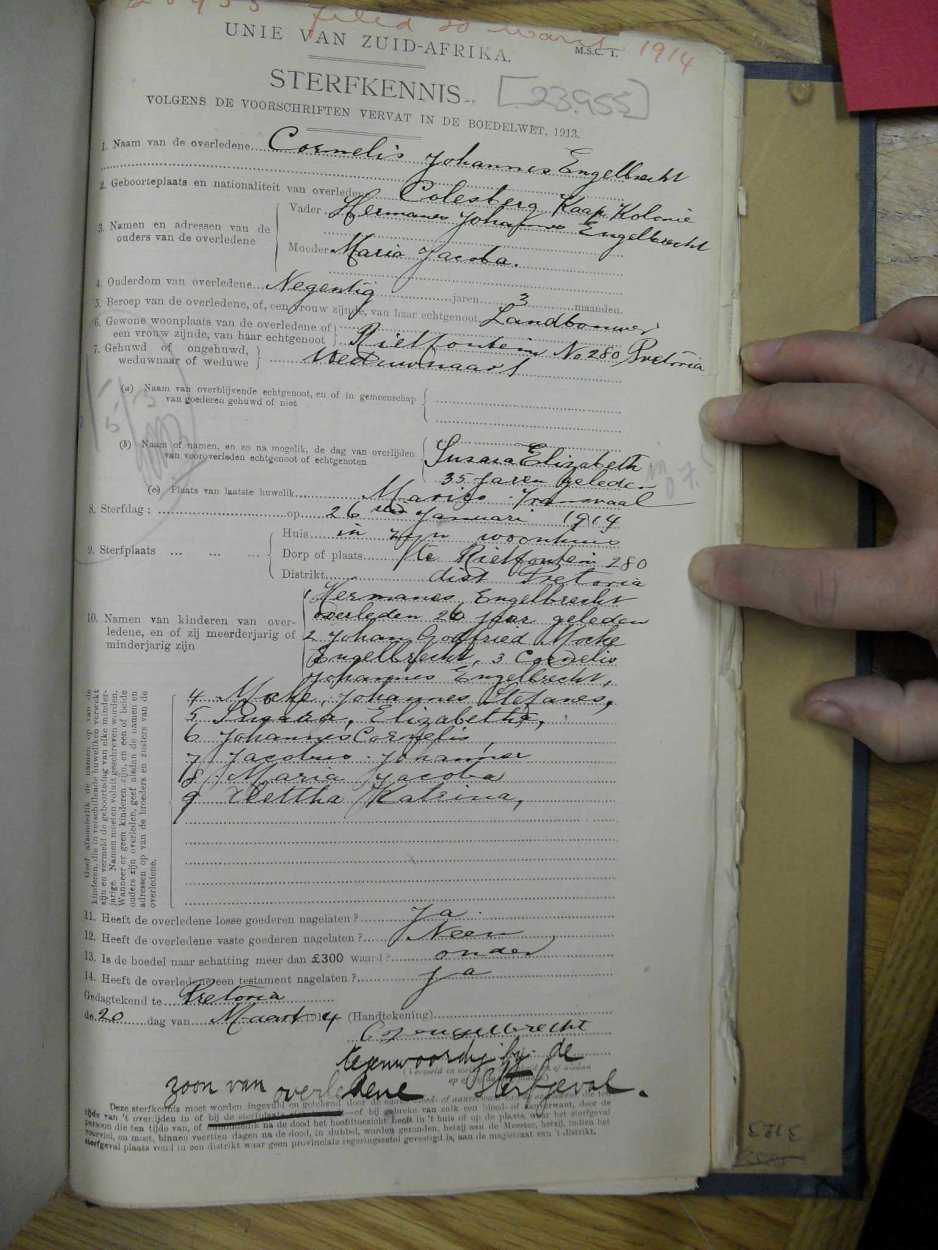 filed 20 March 1914
UNIE VAN ZUID-AFRIKA.
M.S.C. 1.
STERFKENNIS.
[23955]
VOLGENS DE VOORSCHRIFTEN VERVAT IN DE BOEDELWET, 1913.
1. Naam van de overledene Cornelis Johannes Engelbrecht
2. Geboorteplaats en nationaliteit van overledene Colesberg Kaap Kolonie
3. Namen en adressen van de ouders van de overledene
Vader Hermanes Johannes Engelbrecht
Moeder Maria Jacoba.
4. Onderdom van overledene Negentig jaren 3 maanden.
5. Beroep van de overledene, of, een vrouw zijnde, van haar echtgenoot Landbouwer
6. Gewone woonplaats van de overledene of een vrouw zijnde, van haar echtgenoot Rietfontein No 280 Pretoria
7. Gehuwd of ongehuwd, weduwnaar of weduwe Weduwnaar
(a) Naam van overblijvende echtgenoot, en of in gemeenschap
van goederen gehuwd of niet
(b) Naam of namen, en zo na mogelik, de dag van overlijden
van vooroverleden echtgenoot of echtgenoten
Susara Elizabeth
35 jaren geleden
(c) Plaats van laatste huwelik Marico Transvaal
8. Sterfdag; op 26 ste Januari 1914
9. Sterfplaats
Huis in zijn woonhuis
Dorp of plaats te Rietfontein 280
Distrikt dist Pretoria
10. Namen van kinderen van overledene, en of zij meerderjarig of minderjarig zijn
1 Hermanes Engelbrecht
overleden 26 jaar geleden
2 Johan Godfried Mocke
Engelbrecht, 3 Cornelis
Johannes Engelbrecht,
4 Mocke, Johannes Stefanes,
5 Susara, Elizabetha,
6 Johannes Cornelis,
7 Jacobus Johannes
8 Maria Jacoba
9 Hettha Katrina,
Geef afzonderlik de namen op van de
kinderen, die in verschillende huweliken verwekt
zijn en vermeld de geboortedag van elke minderjarige.
Namen moeten voluit geschreven worden.
Wanneer er geen kinderen zijn, en een of beide
ouders zijn overleden, geef alsdan de namen en
adressen op van de broeders en zusters van de
overledene.
11. Heeft de overledene losse goederen nagelaten? Ja
12. Heeft de overledene vaste goederen nagelaten? Neen
13. Is de boedel naar schatting meer dan £300 waard? onder
14. Heeft de overledene een testament nagelaten? Ja
Gedagtekend te Pretoria
de 20 dag van Maart 1914 (Handtekening)
C J Engelbrecht
teenwoordig by de
zoon van overledene Sterfgeval.
Deze sterfkennis moet worden ingevuld en getekend door de
tijde van 't overlijden in of bij de sterfplaats
persoon die ten tijde van, of na de dood het hoofdtoezicht heeft in huis of op de plaats, waar het sterfgeval
voorviel, en moet, binnen veertien dagen na de dood, in dubbel, worden gezonden, hetzij aan de Meester, hetzij, indien het
sterfgeval plaats vond in een distrikt waar geen provinciale regeringszetel gevestigd is, aan de magistraat van 't distrikt.